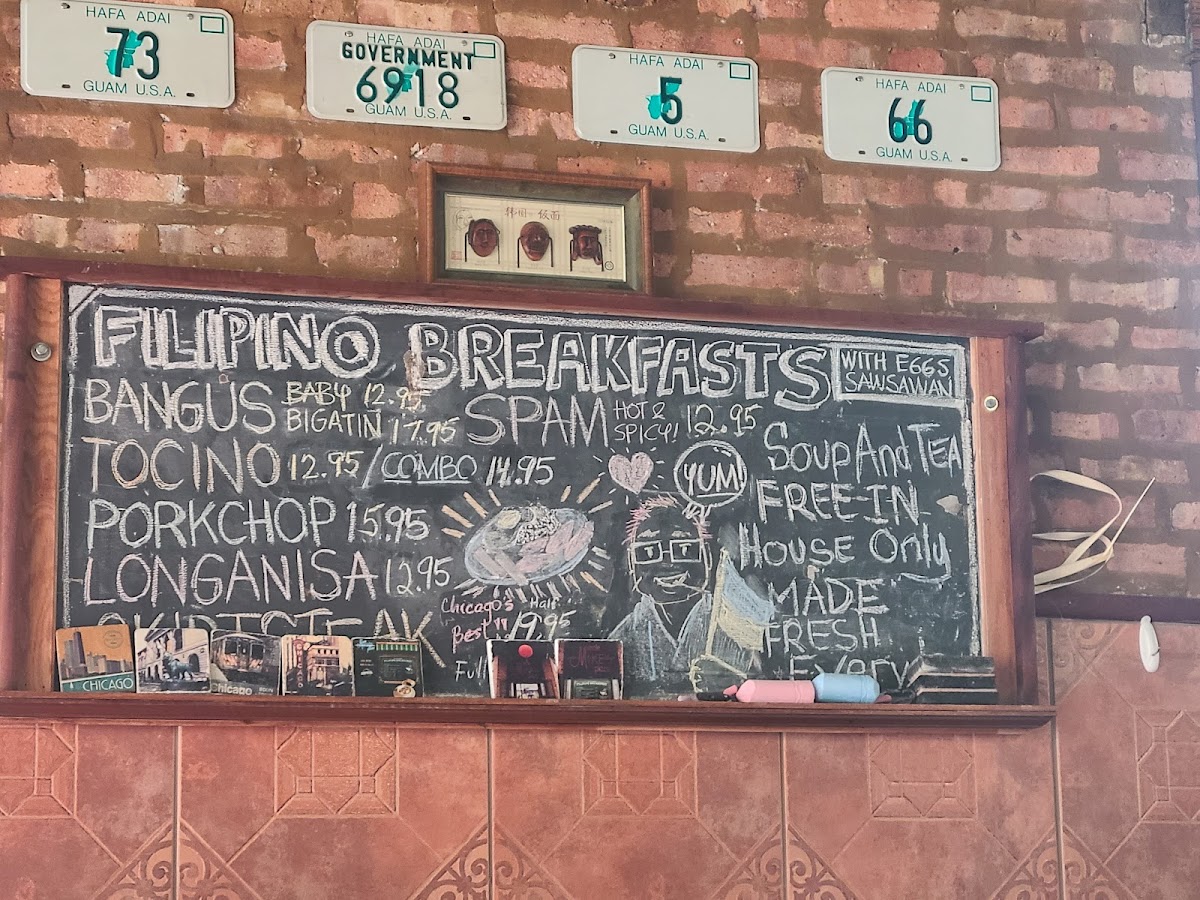 HAFA ADAI
73
GUAM U.S.A.
HAFA ADAI
GOVERNMENT
6918
GUAM U.S.A.
HAFA ADAI
5
GUAM U.S.A.
HAFA ADAI
66
GUAM U.S.A.
FILIPINO BREAKFASTS
WITH EGGS
SAWSAWAN
BANGUS BABY 12.95
BIGATIN 17.95
SPAM HOT &
SPICY! 12.95
TOCINO 12.95 / COMBO 14.95
PORKCHOP 15.95
LONGANISA 12.95
SKIRTSTEAK
Chicago's
Best!!
Half
19.95
Full
YUM!
Soup And TEA
FREE-IN
House Only
MADE
FRESH
EVERY
CHICAGO
Chicago